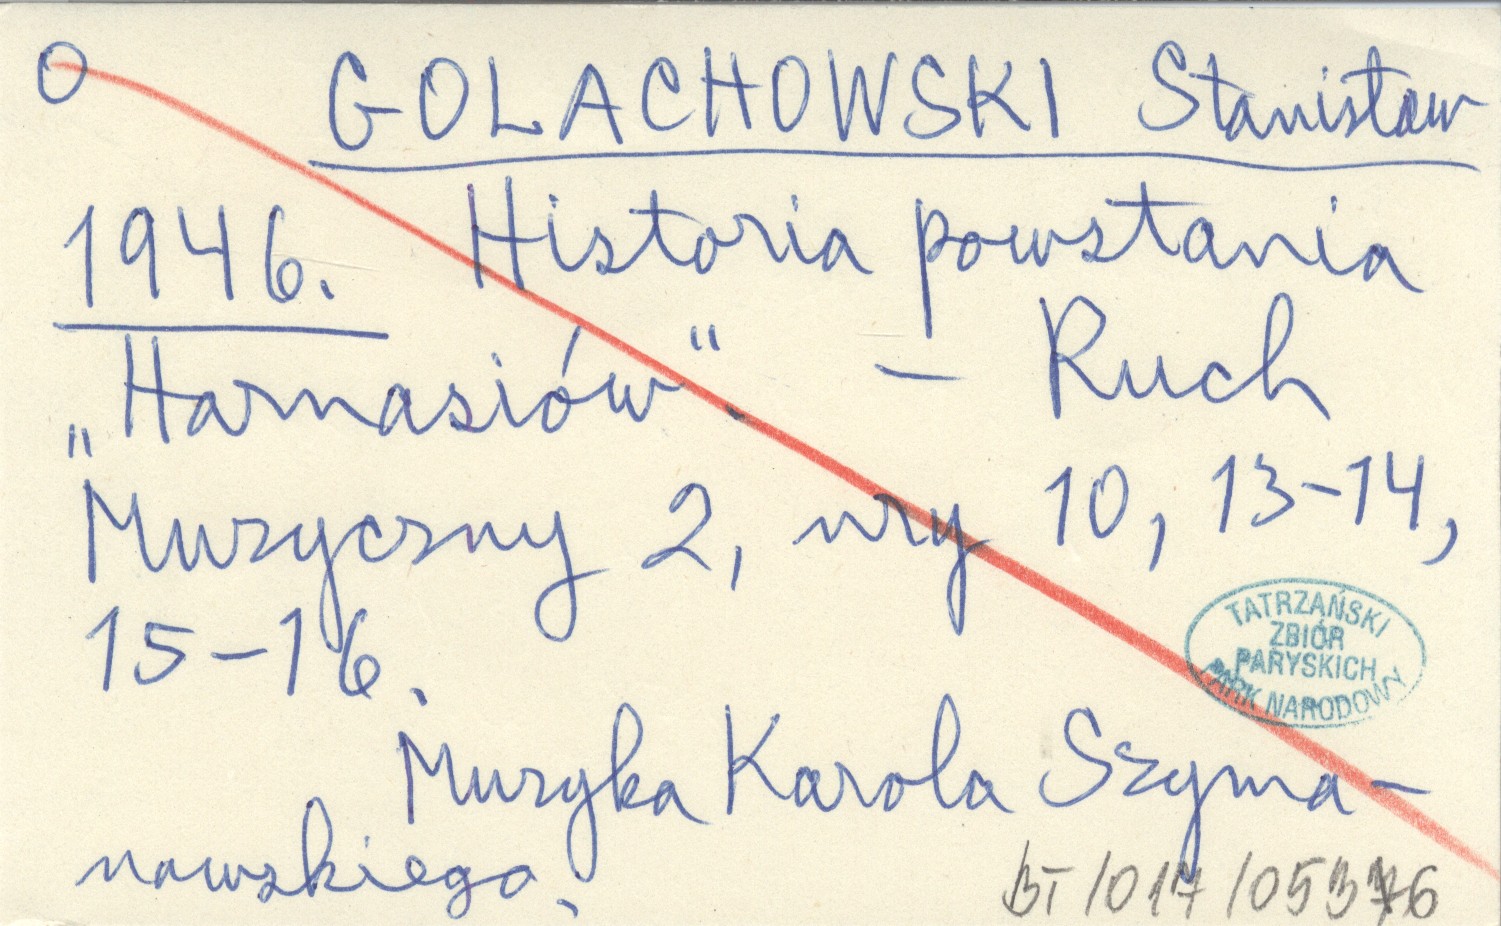 O GOLACHOWSKI Stanisław
1946. Historia powstania
„Harnasiów”. – Ruch
Muzyczny 2, nry 10, 13-14,
15-16.
TATRZAŃSKI
ZBIÓR
PARYSKICH
PARK NARODOWY
Muzyka Karola Szyma-
nowskiego.
BT/017/05376